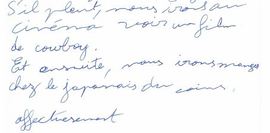 S'il pleut, nous irons au
cinéma voir un film
de cowboy.
Et ensuite, nous irons manger
chez le japonais du coin.
affectueusement